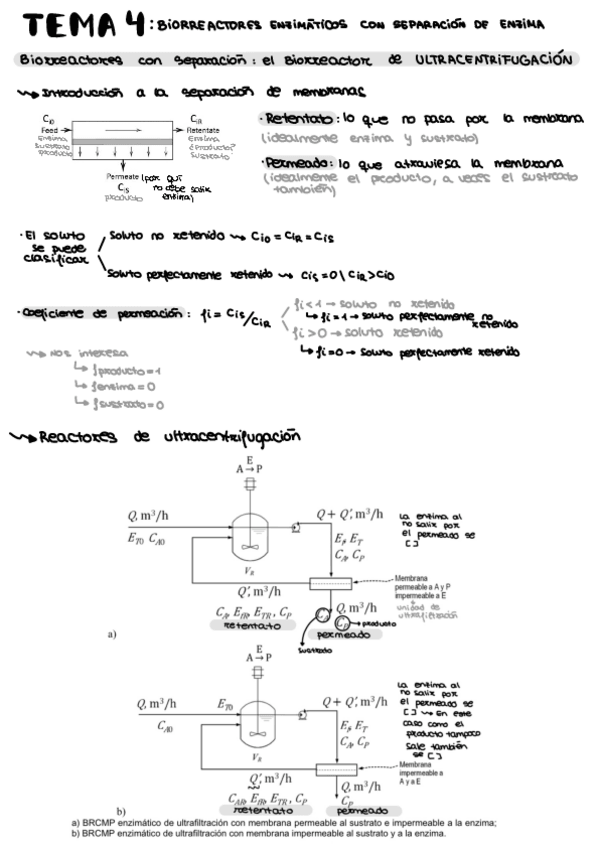 TEMA 4: BIORREACTORES ENZIMÁTICOS CON SEPARACIÓN DE ENZIMA
Biorreactores con separación: el Biorreactor de ULTRACENTRIFUGACIÓN
Introducción a la separación de membranas
Ci0
CiR
Feed
Retentate
Enzima
sustrato
producto
Enzima
¿Producto?
sustrato
Permeate (por qui
no debe salir
enzima)
CiS
producto
· Retentato: lo que no pasa por la membrana
(idealmente enzima y sustrato)
· Permeado: lo que atraviesa la membrana
(idealmente el producto, a veces el sustrato
también)
· El soluto
se puede
clasificar
Soluto no retenido → Ci0 = CiR = CiS
Soluto perfectamente retenido → CiS = 0 \ CiR > Ci0
· Coeficiente de permeación: fi = CiS/CiR
fi < 1 → soluto no retenido
↳ fi = 1 → soluto perfectamente no
retenido
fi > 0 → soluto retenido
↳ fi = 0 → soluto perfectamente retenido
Nos interesa
↳ fproducto = 1
↳ fenzima = 0
↳ fsustrato = 0
Reactores de ultracentrifugación
E
A→P
Q, m³/h
E_T0 C_A0
V_R
Q + Q', m³/h
E_f, E_T
C_A, C_P
La enzima al
no salir por
el permeado se
[ ]
Membrana
permeable a A y P
impermeable a E
unidad de
ultrafiltración
Q', m³/h
C_A, E_fR, E_TR, C_P
retentato
Q, m³/h
C_A
C_P → producto
permeado
sustrato
a)
E
A→P
Q, m³/h
E_T0
C_A0
V_R
Q + Q', m³/h
E_f, E_T
C_A, C_P
La enzima al
no salir por
el permeado se
[ ] → En este
caso como el
producto tampoco
sale también
se [ ]
Membrana
impermeable a
A y a E
Q', m³/h
C_AR, E_fR, E_TR, C_P
retentato
Q, m³/h
C_P
permeado
b)
a) BRCMP enzimático de ultrafiltración con membrana permeable al sustrato e impermeable a la enzima;
b) BRCMP enzimático de ultrafiltración con membrana impermeable al sustrato y a la enzima.